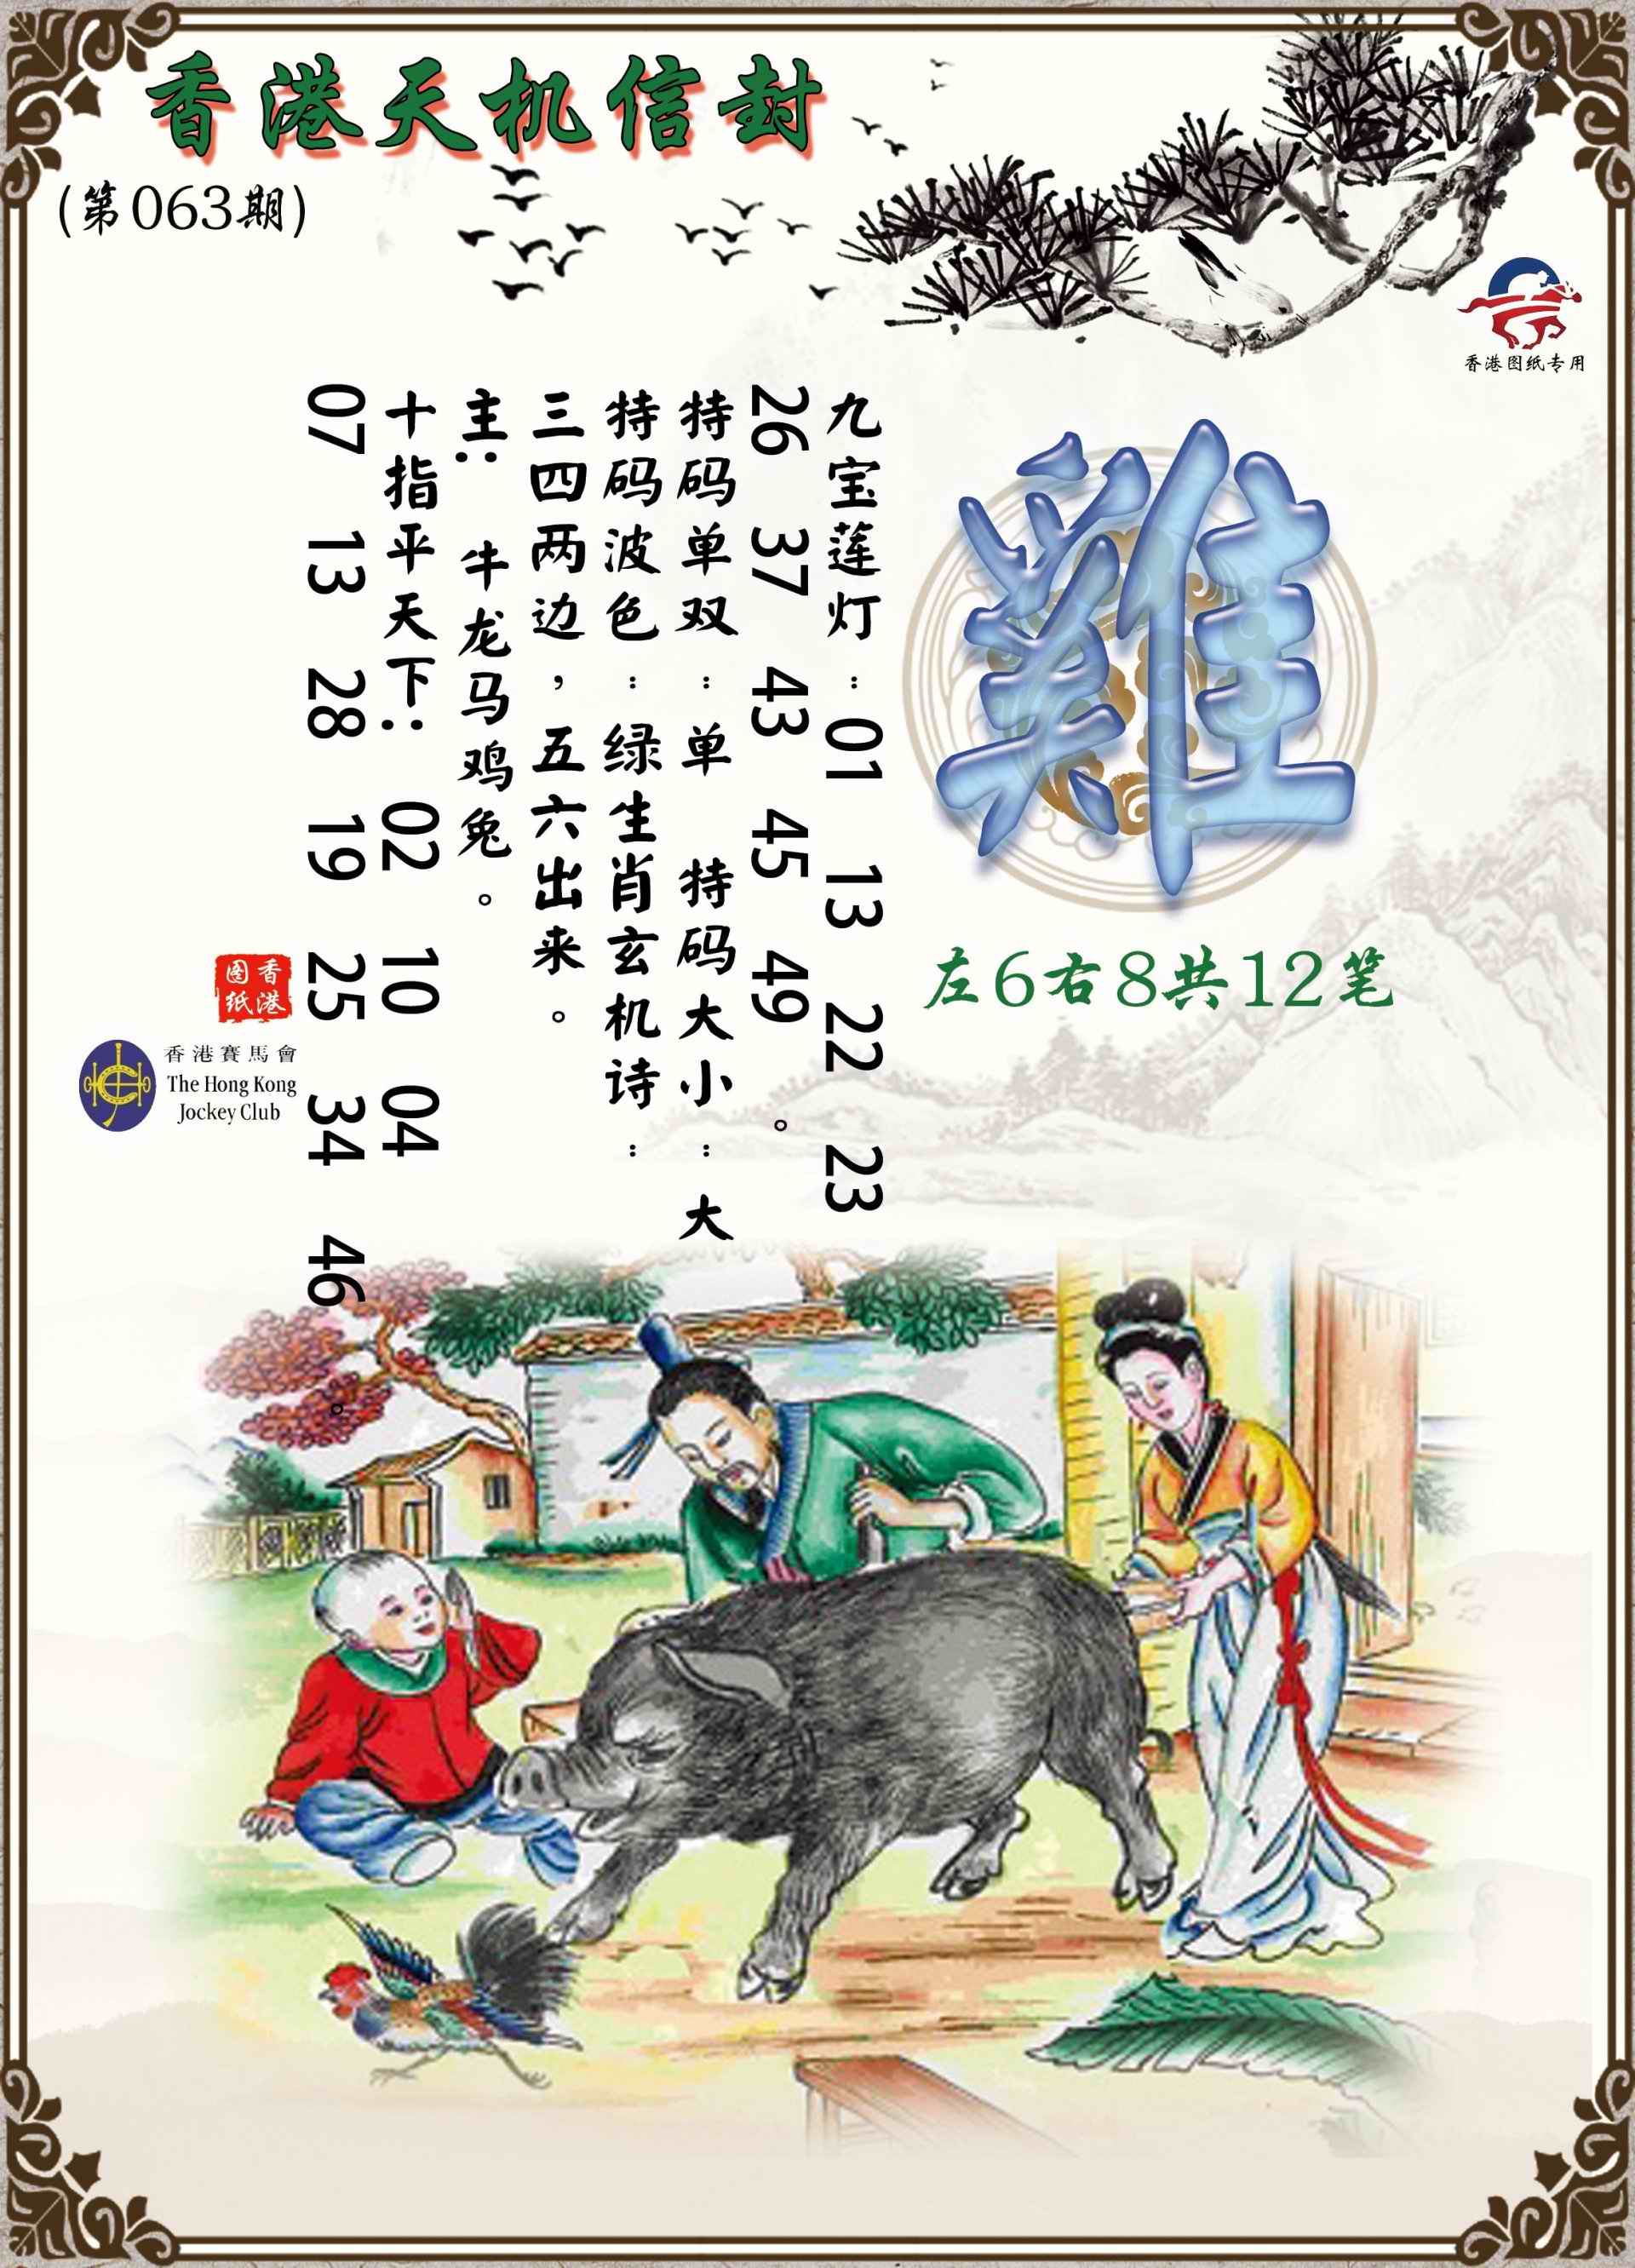 香港天机信封
(第063期)
香港图纸专用
左6右8共12笔
九宝莲灯：01 13 22 23
26 37 43 45 49。
特码单双：单 特码大小：大
特码波色：绿生肖玄机诗：
三四两边，五六出来。
主： 牛龙马鸡兔。
十指平天下： 02 10 04
07 13 28 19 25 34 46。
香港
图纸
香港賽馬會
The Hong Kong
Jockey Club